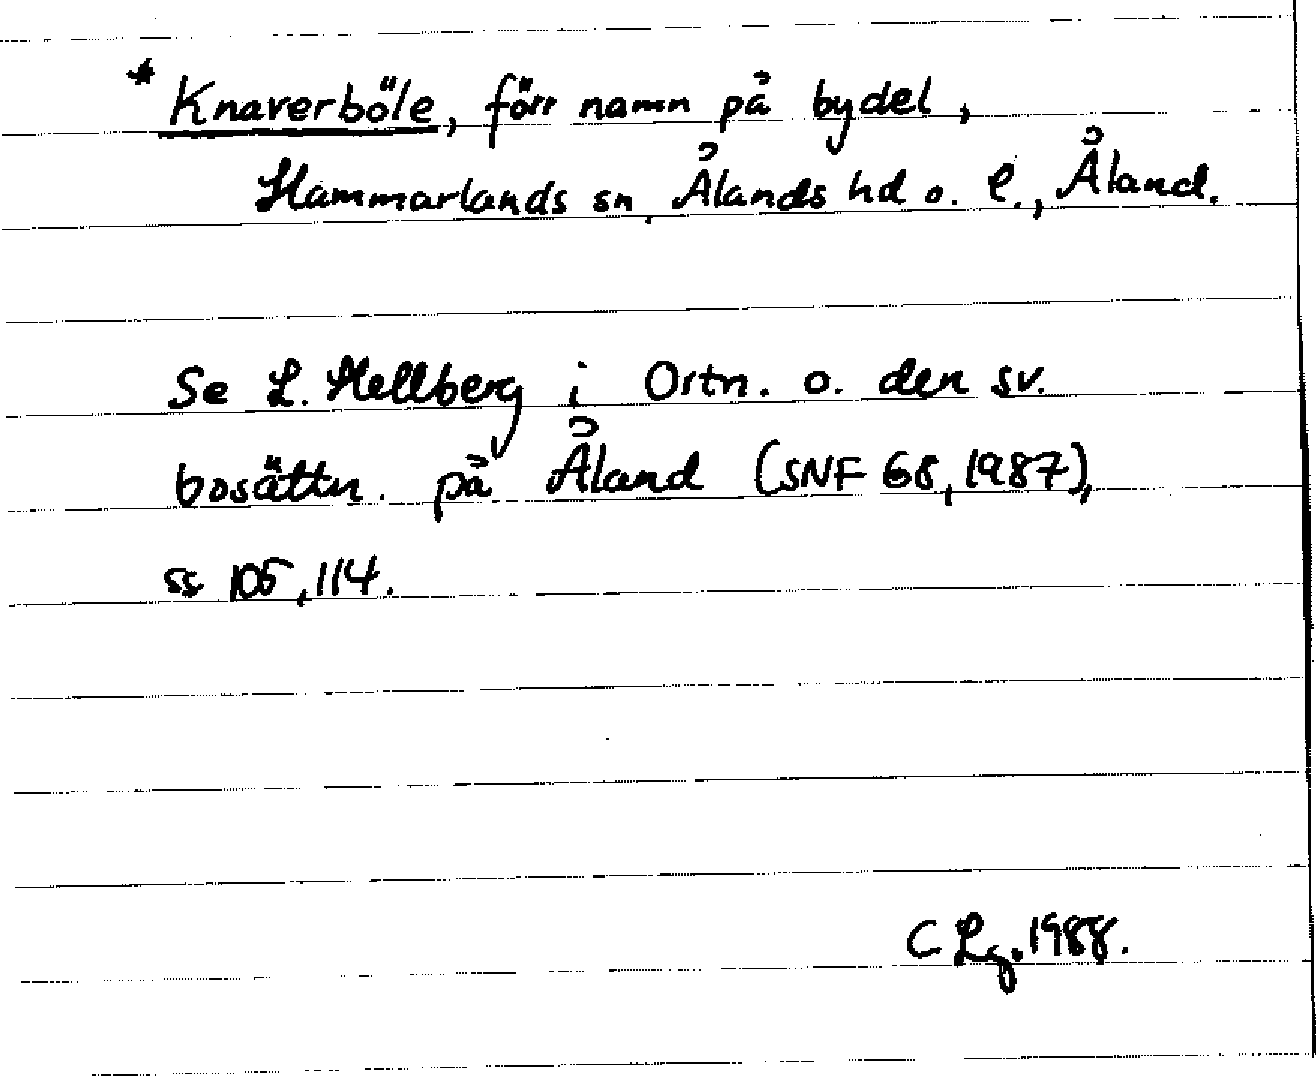 * Knaverböle, förr namn på bydel,
Hammarlands sn, Ålands hd o. l., Åland.
Se L. Hellberg i Ortn. o. den sv.
bosättn. på Åland (SNF 68, 1987),
ss 105, 114.
C Lg. 1988.